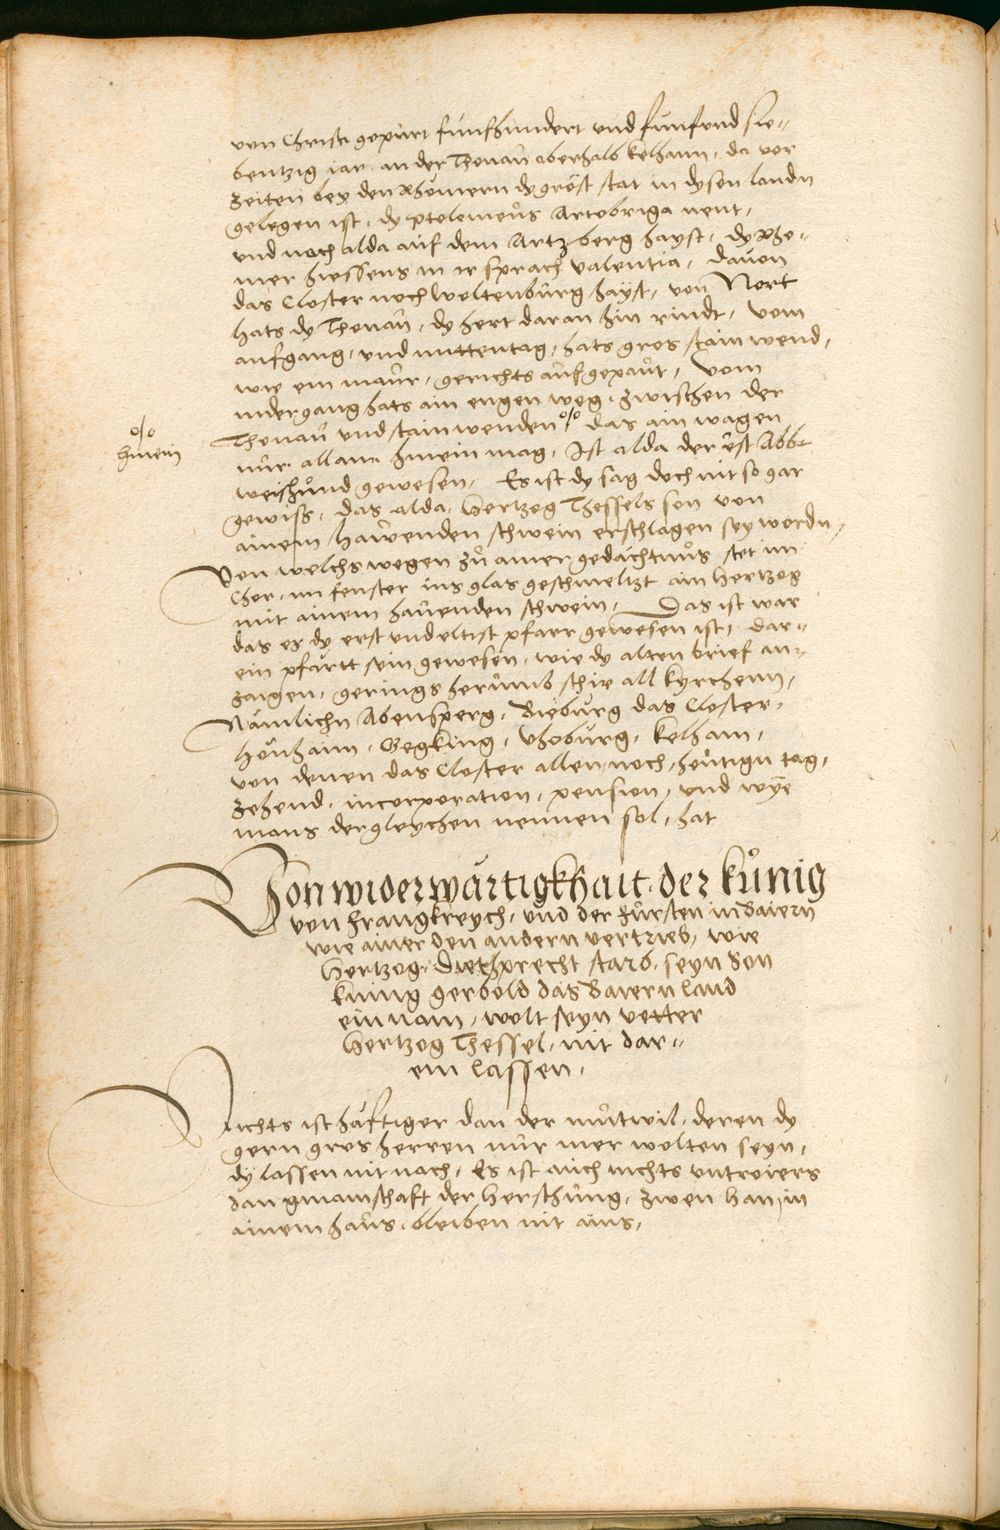 von Christi gepůrt fůnfhůndert und fůnfund sie-
bentzig iar. an der Thonaů oberhalb kelhaim, da vor
zeiten bey den Rhömern dy gröst stat in dysen landn
gelegen ist, dy ptolemeůs Artobriga nent,
und noch alda aůf dem Artzberg hayst, dy Rhö-
mer hiessens in ir sprach Valentia, davon
das Closter noch Weltenbůrg hayst, von Nort
hats dy Thonaů, dy hert daran hin rindt, vom
aufgang, und mittentag, hats gros stain wend,
wie ein maůr, gerichts aůfgepaůt, vom
nidergang hats ain engen weg, zwischen der
Thonaů und stainwenden % das ain wagen
% hinein
nůr allain hinein mag, Ist alda der erst Abbt
weishůnd gewesen, Es ist dy sag doch nit so gar
gewiss, das alda, Hertzog Thessels son von
ainem haůenden schwein erschlagen sey wordn,
Von welchs wegen zů ainer gedächtnůs stet im
Chor, im fenster ins glas geschmeltzt ain Hertzog
mit ainem haůenden schwein, Das ist war
das es dy erst und eltist pfarr gewesen ist, dar-
ein pfarrt sein gewesen, wie dy alten brief an-
zaigen, gerings herůmb schir all kyrchenn,
Nämlichn Abensperg, Bibůrg das Closter,
Hönhaim, Gegking, Vhobůrg, kelham,
von denen das Closter allen noch heůtign tag,
zehend, incorporation, pension, und wye
mans dergleychen nennen sol, hat
Von widerwärtigkhait der kůnig
von Frangkreych, und der Fůrsten in Baiern
wie ainer den andern vertrieb, wie
Hertzog Diethprecht starb, seyn Son
kůnig gerbold das Baiernland
ein nam, wolt seyn vetter
Hertzog Thessel, nit dar-
ein lassen,
Nichts ist häftiger dan der můtwil, deren dy
gern gros herren nůr mer wolten seyn,
dy lassen nit nach, Es ist aůch nichts untreiers
dan gmainschaft der Herschůng, zwen han in
ainem haůs, bleiben nit ains,